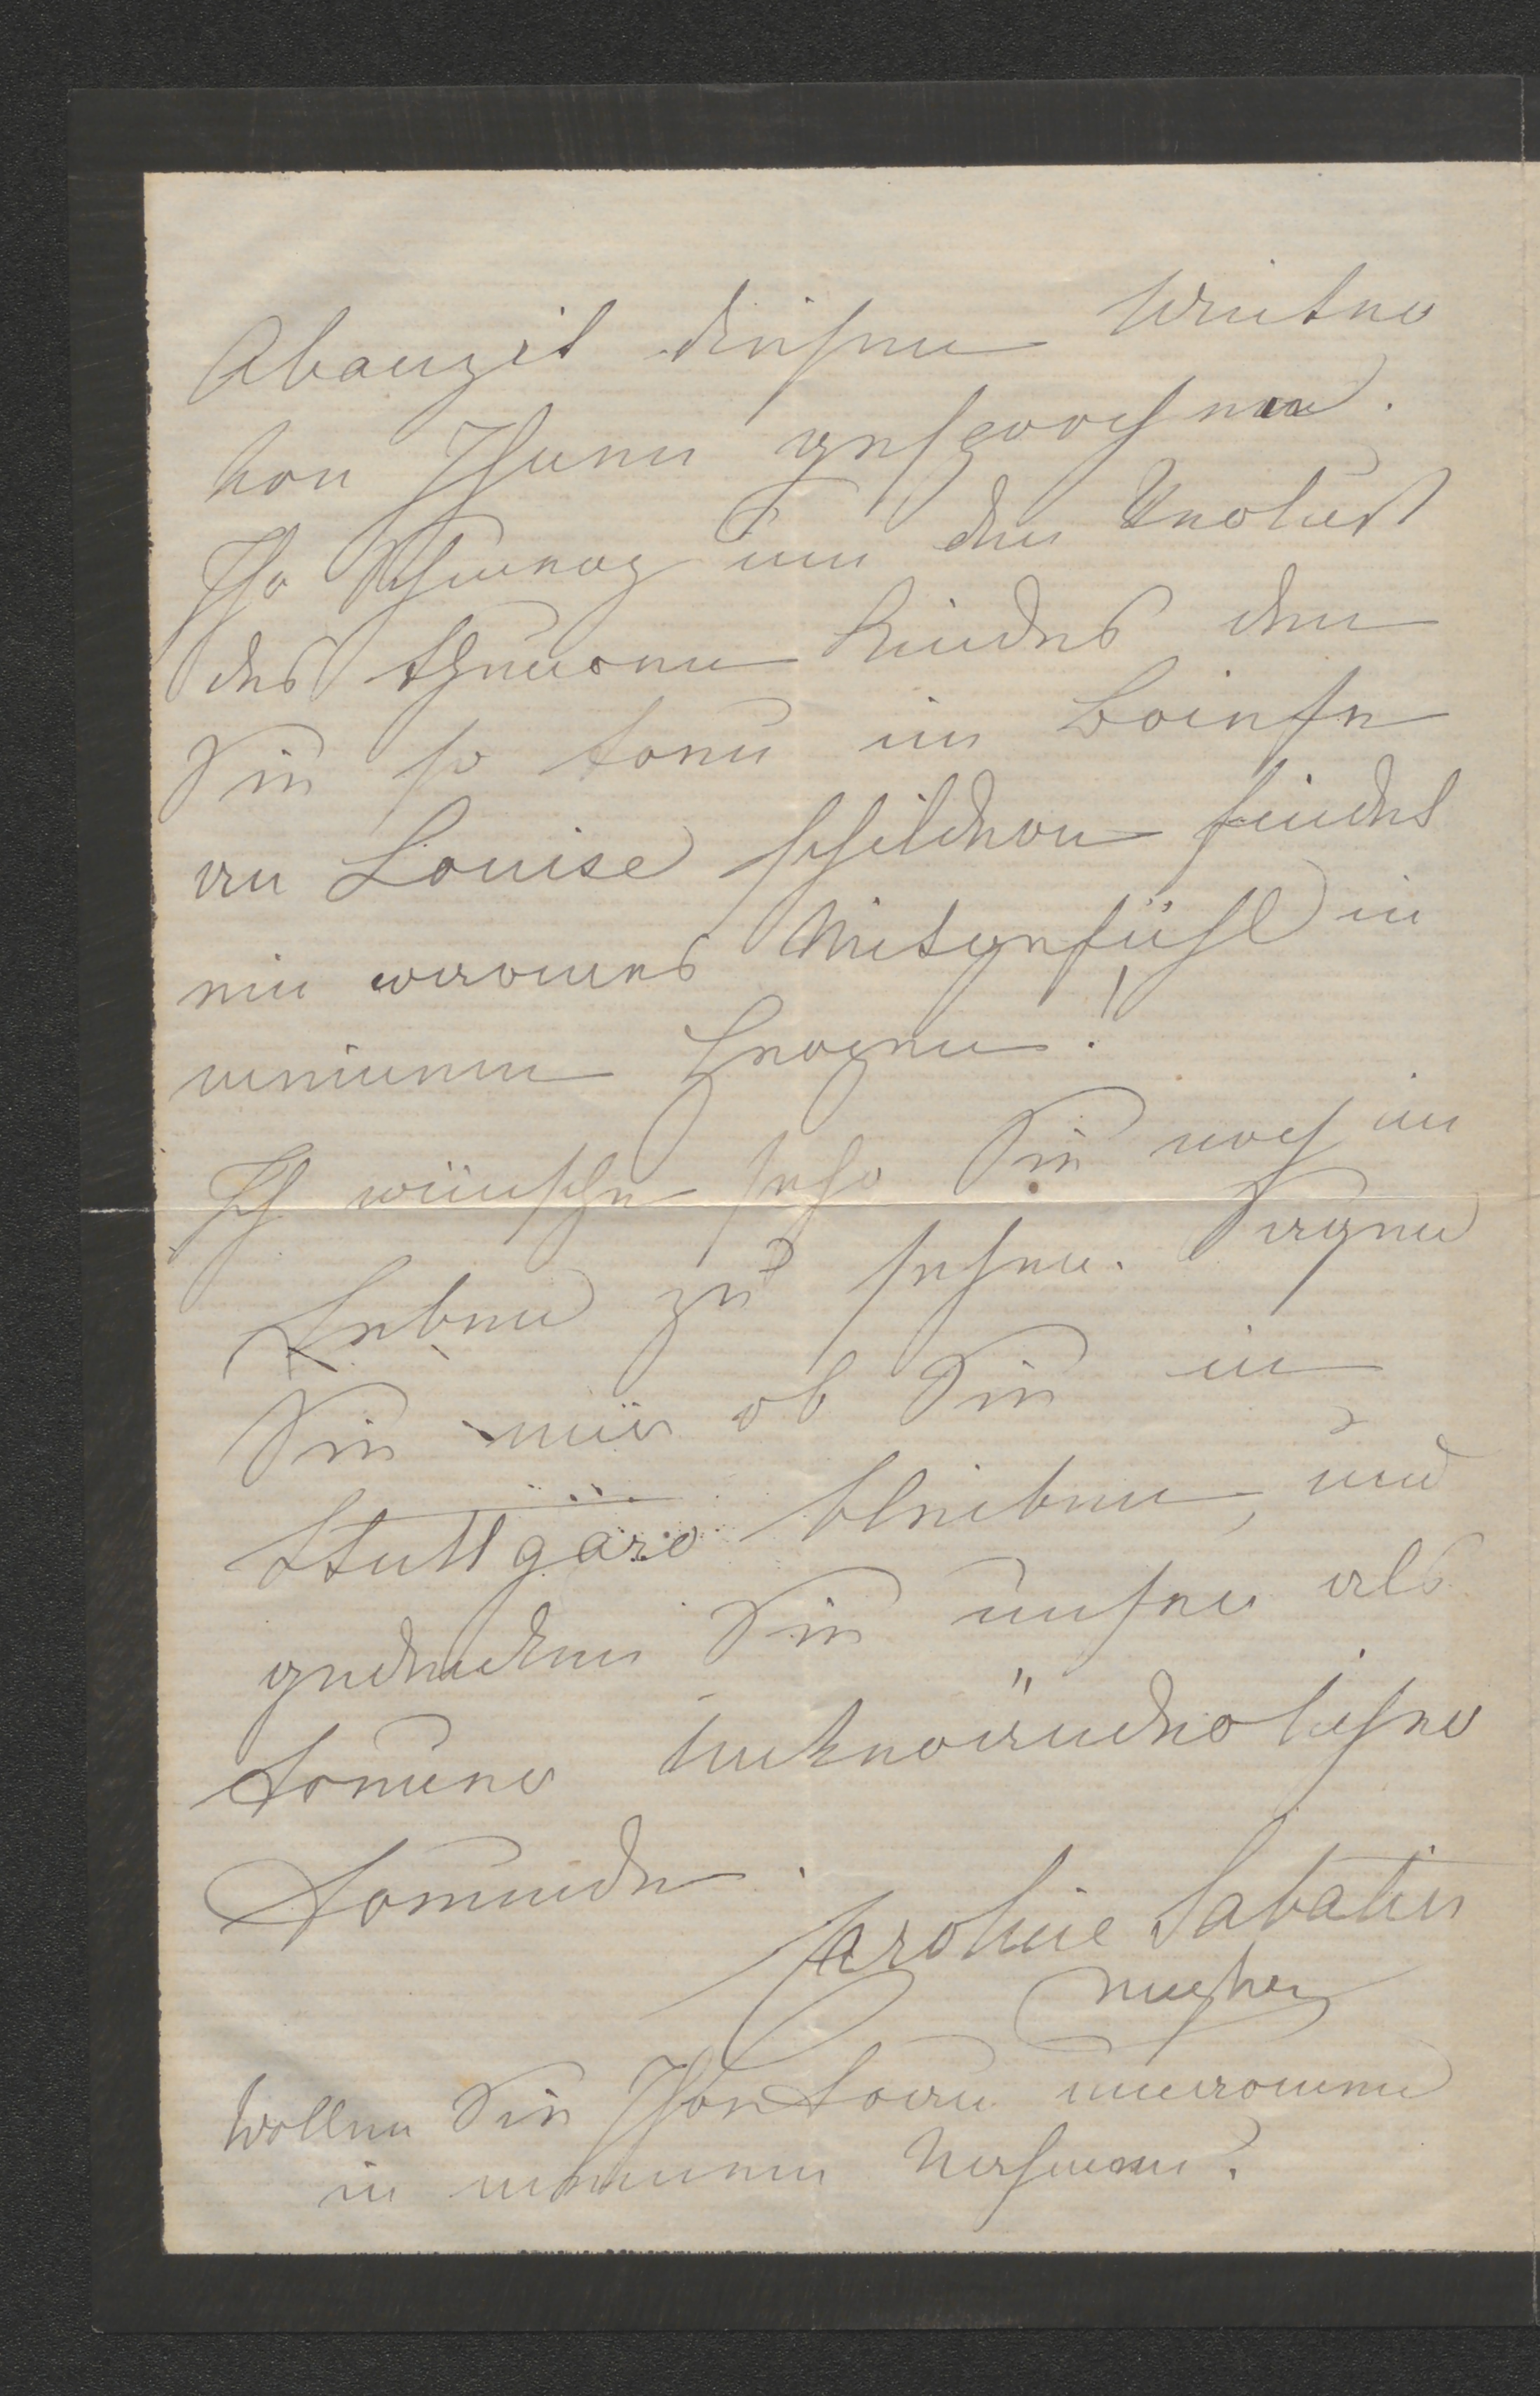 Abauzit diesen Winter
von Ihnen gesprochen.
Ihr Schmerz um den Verlust
des theuren Kindes den
Sie so treu im Briefe
an Louise schildern findet
ein warmes Mitgefühl in
meinem Herzen!
Ich wünsche sehr Sie noch im
Leben zu sehen. Sagen
Sie mir ob Sie in
Stuttgard bleiben, und
gedenken Sie unser als
treuer unveränderlicher
Freunde.
Caroline Sabatier
Ungher
Wollen Sie Ihre Frau umarmen
in meinem Nahmen?